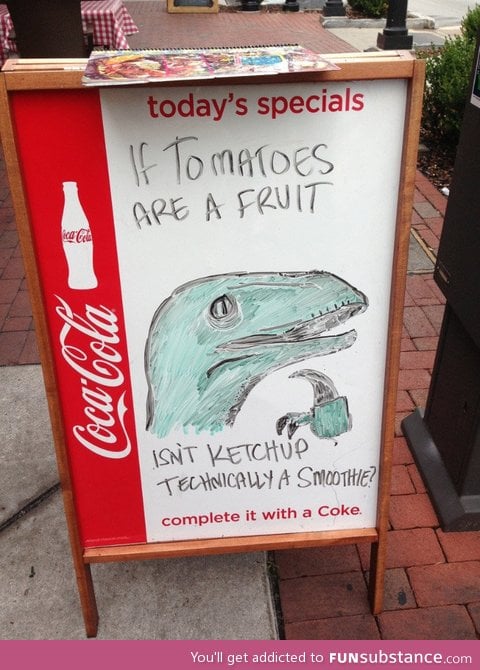 today's specials
IF TOMATOES
ARE A FRUIT
Coca-Cola
Coca-Cola
ISN'T KETCHUP
TECHNICALLY A SMOOTHIE?
complete it with a Coke.
You'll get addicted to FUNsubstance.com